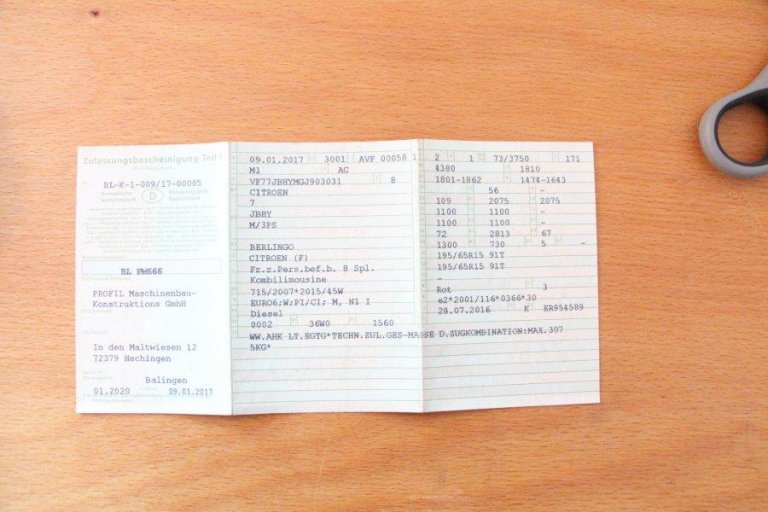 Zulassungsbescheinigung Teil I
BL-K-1-009/17-00085
Europäische Gemeinschaft
D
Bundesrepublik Deutschland
BL PM666
PROFIL Maschinenbau-
Konstruktions GmbH
In den Maltwiesen 12
72379 Hechingen
Balingen
01.2020
09.01.2017
09.01.2017 3001 AVP 00058 1
M1 AC
VF77JBHYMGJ903031 8
CITROEN
7
JBHY
M/3PS
BERLINGO
CITROEN (F)
Fz.z.Pers.bef.b. 8 Spl.
Kombilimousine
715/2007*2015/45W
EURO6;W;PI/CI; M, N1 I
Diesel
0002 36W0 1560
WW.AHK LT.EGTG*TECHN.ZUL.GES-MASSE D.ZUGKOMBINATION:MAX.307
5KG*
2 1 73/3750 171
4380 1810
1801-1862 1474-1643
56 -
109 2075 2075
1100 1100 -
1100 1100 -
72 2813 67
1300 730 5 -
195/65R15 91T
195/65R15 91T
-
Rot 3
e2*2001/116*0366*30
28.07.2016 K ER954589